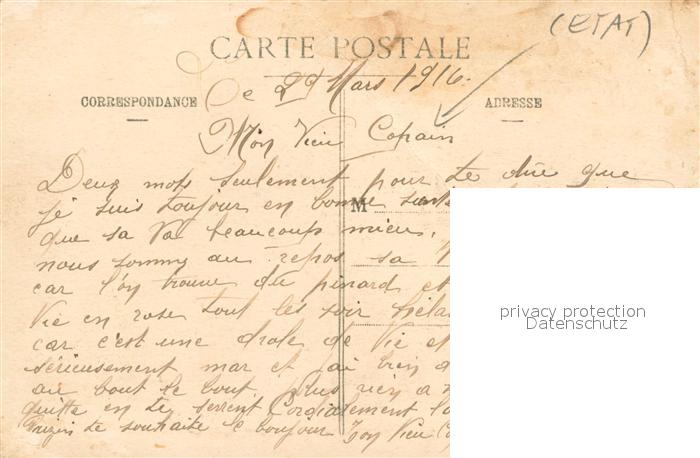 (ETAT)
CARTE POSTALE
Le 29 Mars 1916.
CORRESPONDANCE
ADRESSE
Mon Vieu Copain
Deux mots seulement pour te dire que
je suis toujour en bonne santé
M
que sa va beaucoup mieux,
nous somms au repos sa
car l'on trouve du pinard et
vie en rose tout les soir
car c'est une drole de vie et
sérieusement mar et j'ai bien
au bout le bout plus rien a
quitte en te serrent Cordialement la
te souhaite le bonjour Ton Vieu
privacy protection
Datenschutz